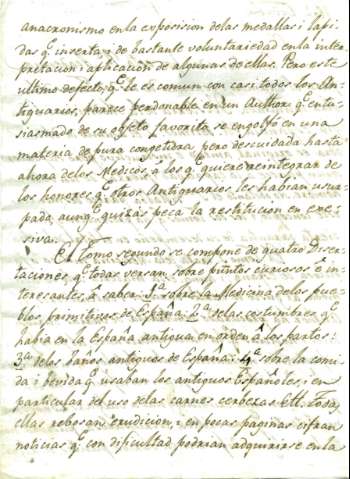 anacronismo en la exposicion delas medallas i lapi-
das q.e inserta, i de bastante voluntariedad en la inter-
pretacion i aplicación de algunas de ellas. Pero este
ultimo defecto, q.e le es comun con casi todos los An-
tiquarios, parece perdonable en un Author q.e entu-
siasmado de su objeto favorito se engolfó en una
materia de pura congetura, pero descuidada hasta
ahora delos Medicos, á los q.e quiere reintegrar de
los honores q.e otros Antiquarios les habian usur-
pado, aunq.e quizás peca la restitucion en exce-
siva.
El Tomo segundo se compone de quatro Diser-
taciones, q.e todas versan sobre puntos curiosos é in-
teresantes, á saber, 1.a sobre la Medicina delos pue-
blos primitivos de España: 2.a delas costumbres q.e
habia en la España antigua en orden á los partos:
3.a delos baños antiguos de España: 4.a sobre la comi-
da i bebida q.e usaban los antiguos Españoles, i en
particular del uso de las carnes
ellas rebosan erudicion, i en pocas paginas cifran
noticias q.e con dificultad podrian adquirirse en la